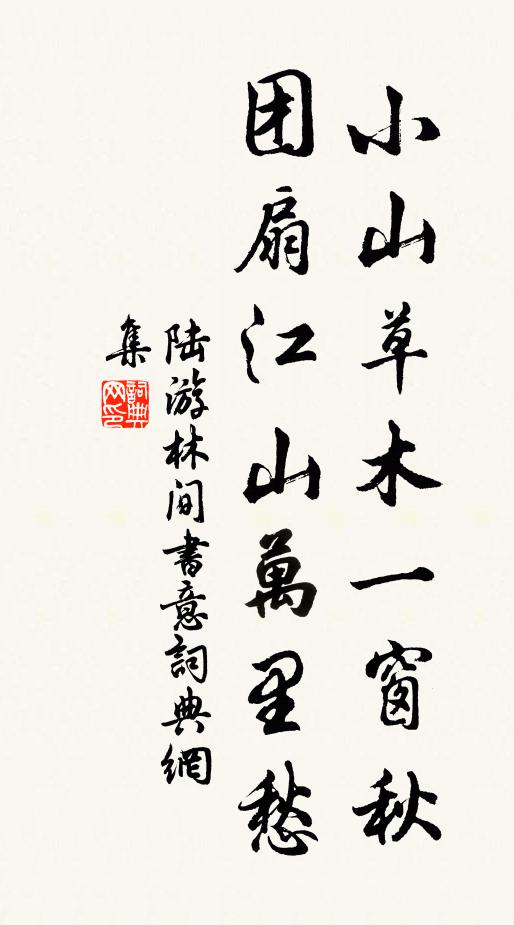 小山草木一窗秋
团扇江山萬里愁
陆游林间書意詞典網
集
詞典
网印